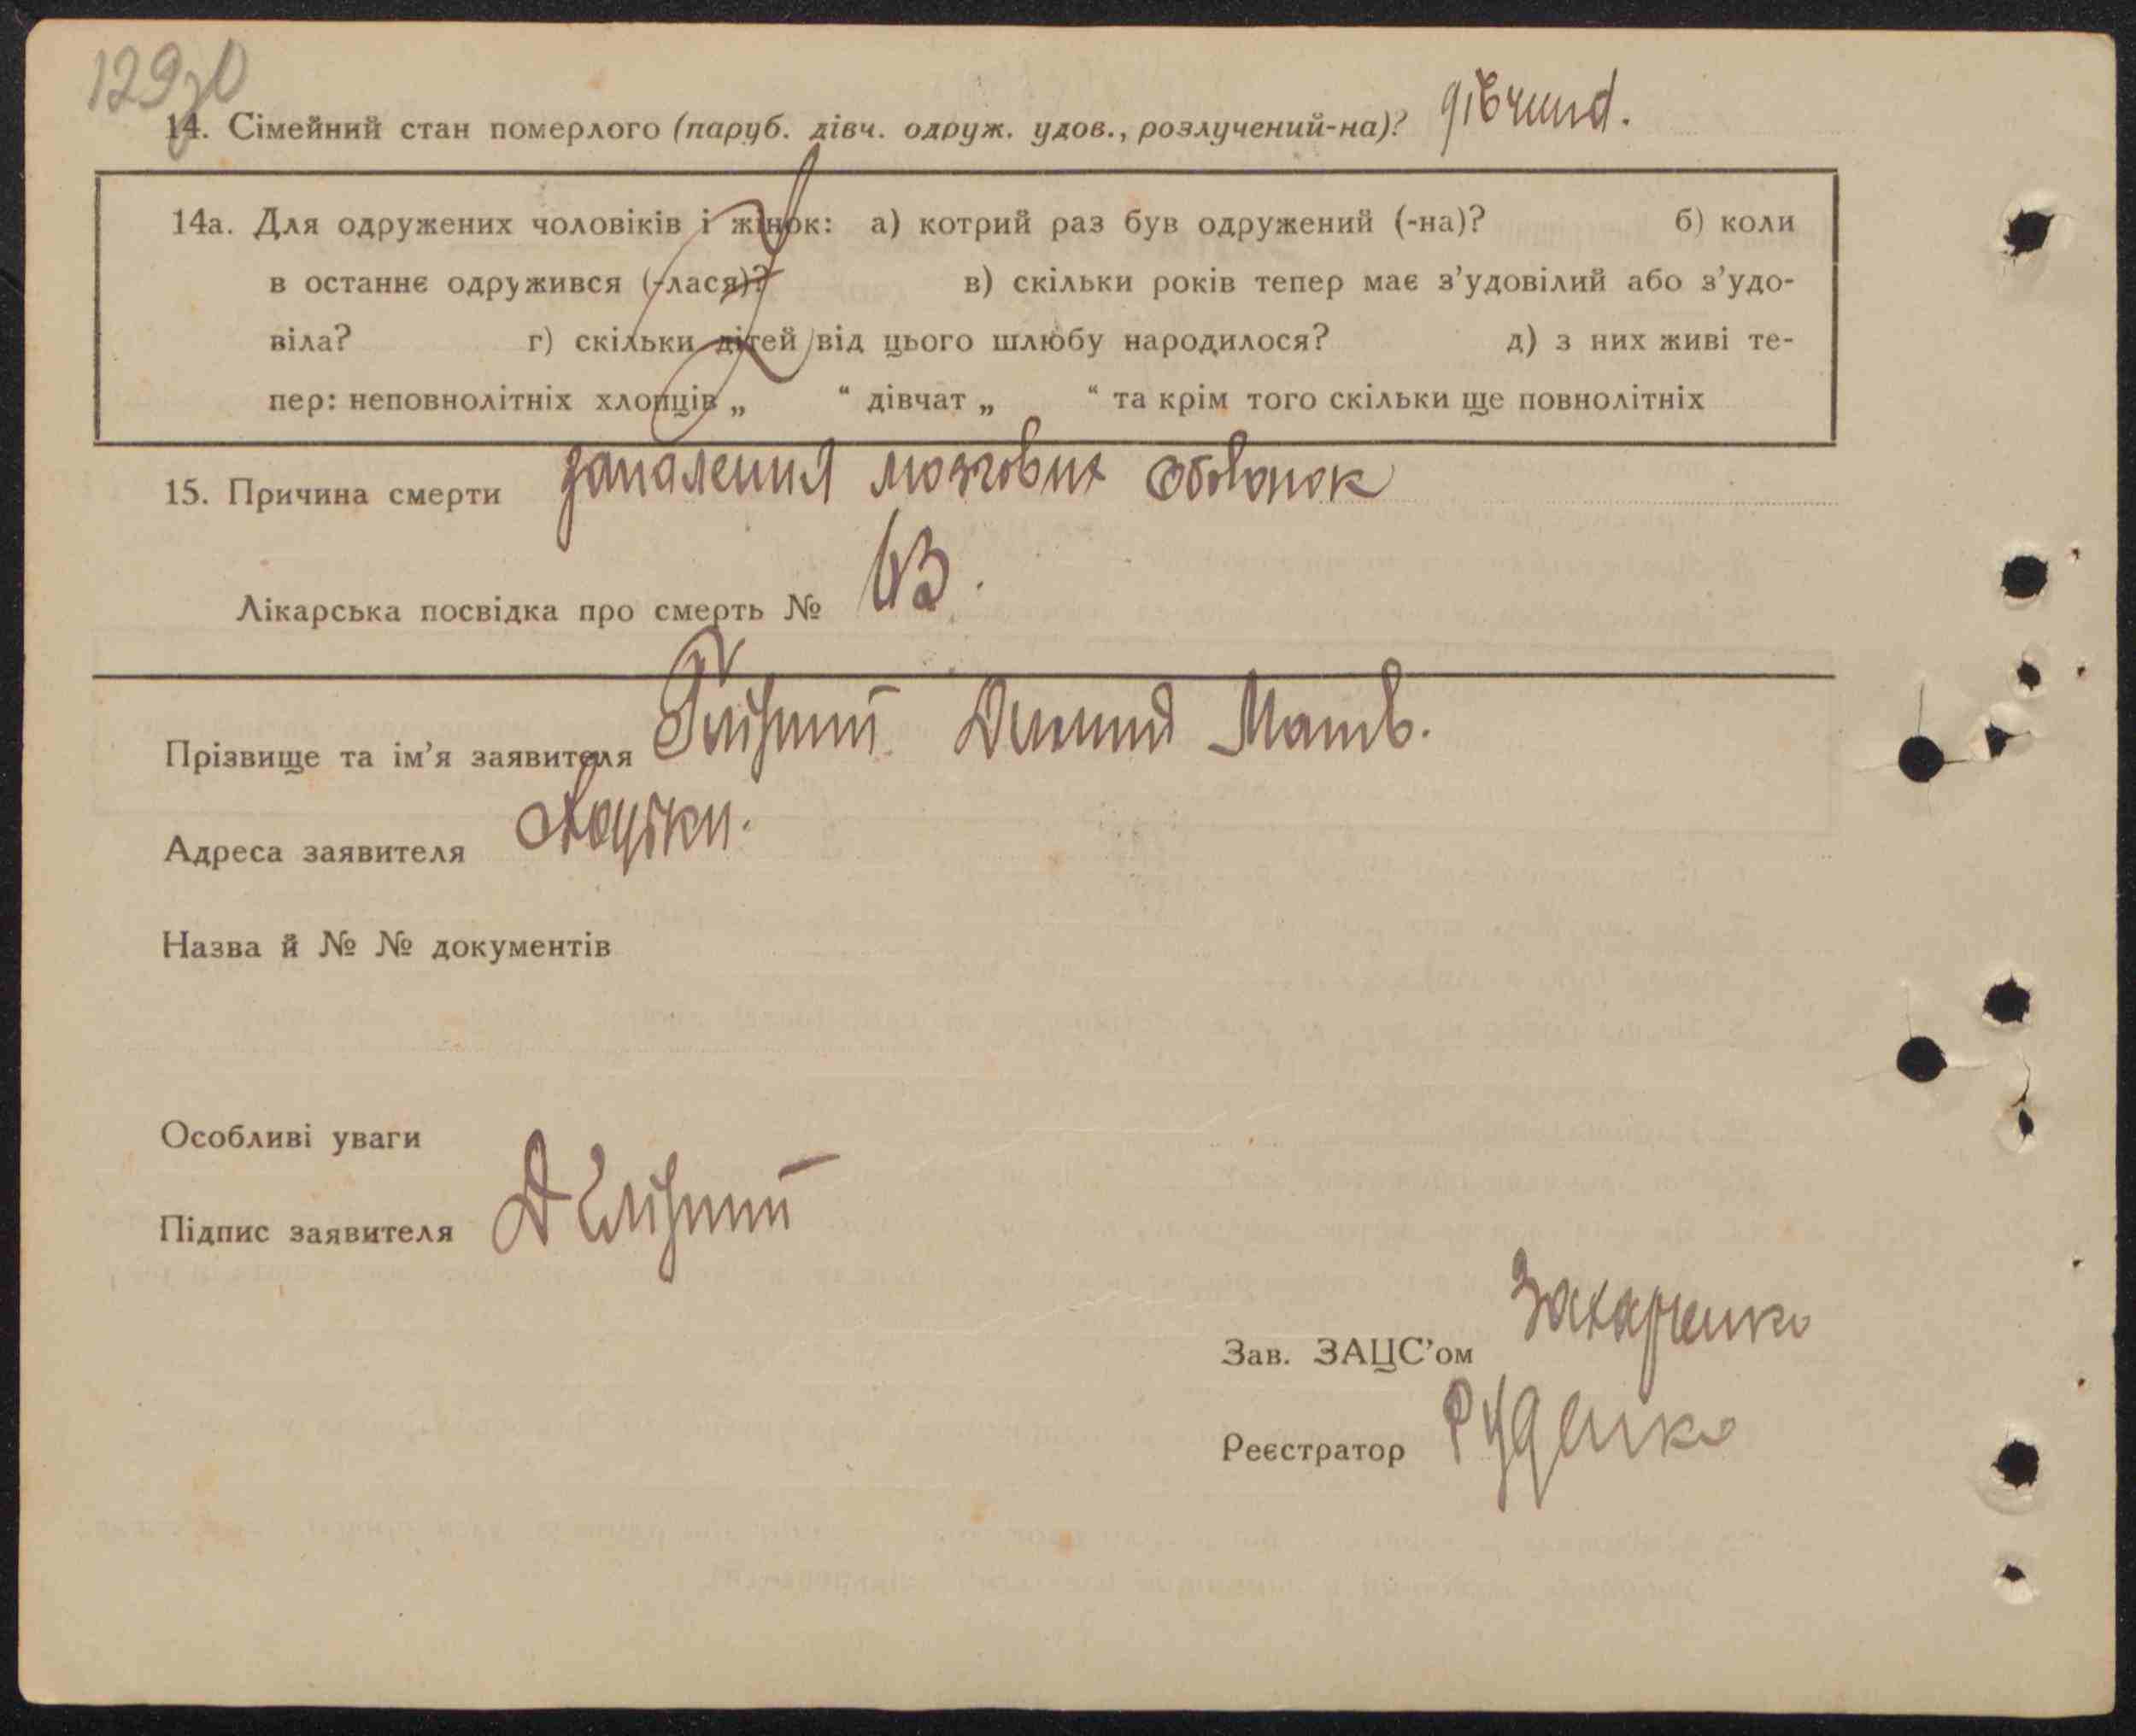 129
14. Сімейний стан померлого (паруб. дівч. одруж. удов., розлучений-на)? дівчина.
14а. Для одружених чоловіків і жінок: а) котрий раз був одружений (-на)? б) коли
в останнє одружився (-лася)? в) скільки років тепер має з’удовілий або з’удо-
віла? г) скільки дітей від цього шлюбу народилося? д) з них живі те-
пер: неповнолітніх хлопців „ “ дівчат „ “ та крім того скільки ще повнолітніх
15. Причина смерти запалення мозгових оболонок
Лікарська посвідка про смерть №
Прізвище та ім’я заявителя
Адреса заявителя
Назва й № № документів
Особливі уваги
Підпис заявителя
Зав. ЗАЦС’ом Захаренко
Реєстратор Руденко